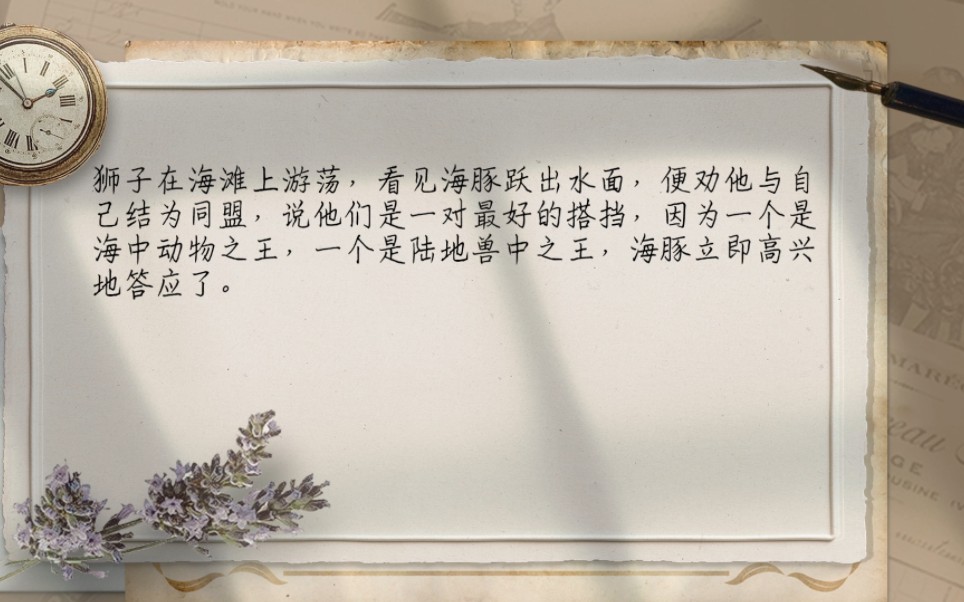 狮子在海滩上游荡，看见海豚跃出水面，便劝他与自
己结为同盟，说他们是一对最好的搭挡，因为一个是
海中动物之王，一个是陆地兽中之王，海豚立即高兴
地答应了。